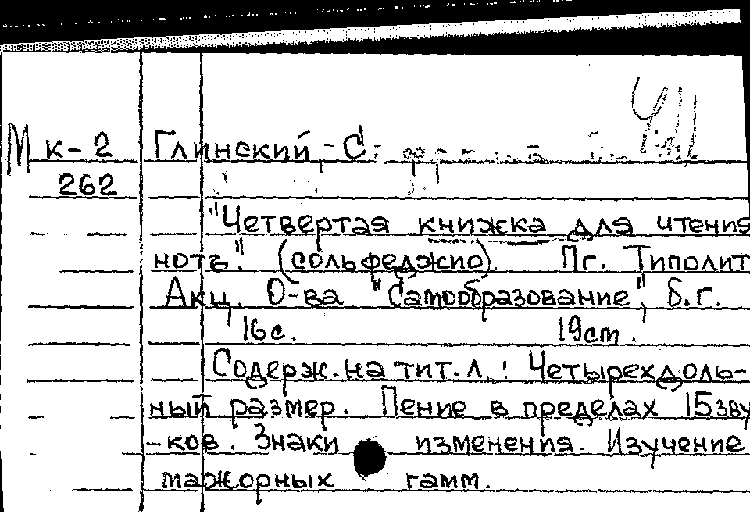 М к-2 Глинский, С.
262
"Четвертая книжка для чтения
нотъ." (сольфеджио). Пг. Типолит
Акц. О-ва "Самообразование", б.г.
16с. 19ст.
Содерж. на тит.л.: Четырехдоль-
ный размер. Пение в пределах 15 зву
-ков. Знаки изменения. Изучение
мажорных гамм.